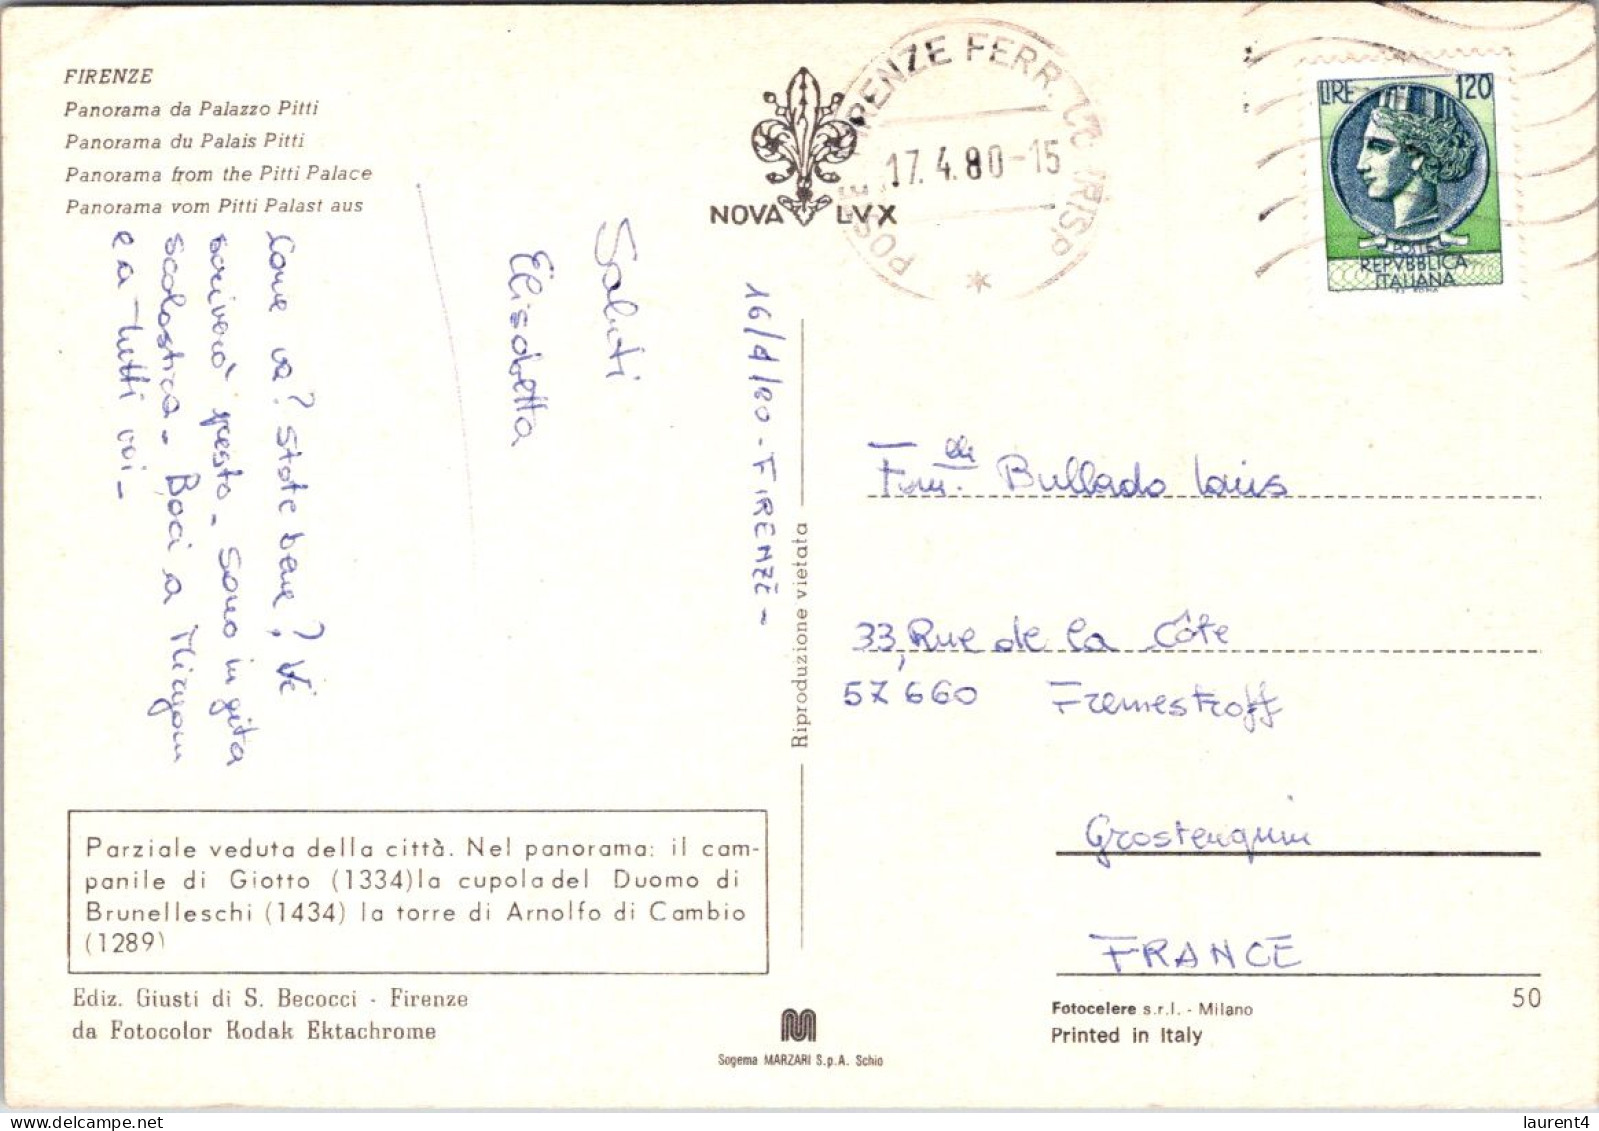 FIRENZE
Panorama da Palazzo Pitti
Panorama du Palais Pitti
Panorama from the Pitti Palace
Panorama vom Pitti Palast aus
Come va? State bene? Vi
scriverò presto - Sono in gita
scolastica - Baci a
e a tutti voi -
Saluti
Elisabetta
16/4/80 - FIRENZE -
NOVA LVX
FIRENZE FERR.
17.4.80-15
LIRE 120
POSTE
REPVBBLICA
ITALIANA
Fam. Bullado Louis
33, Rue de la Côte
57660 Fremestroff
Grostenquin
FRANCE
Riproduzione vietata
Parziale veduta della città. Nel panorama: il cam-
panile di Giotto (1334) la cupola del Duomo di
Brunelleschi (1434) la torre di Arnolfo di Cambio
(1289)
Ediz. Giusti di S. Becocci - Firenze
da Fotocolor Kodak Ektachrome
Sogema MARZARI S.p.A. Schio
Fotocelere s.r.l. - Milano
Printed in Italy
50
laurent4